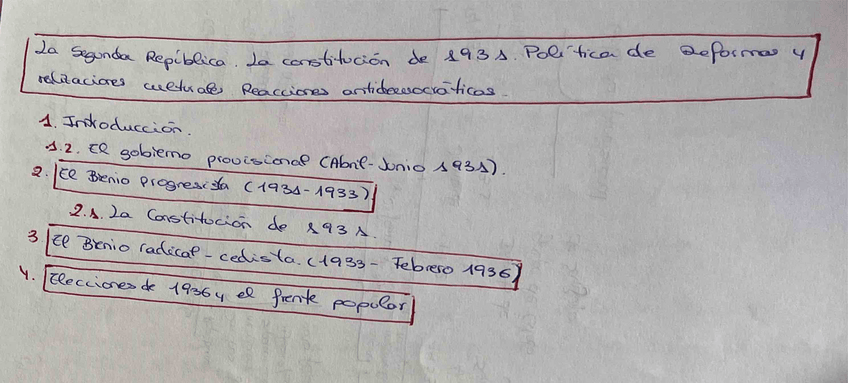 La Segunda República. La constitución de 1931. Política de Reformas y
relizaciones culturales Reacciones antidemocráticas.
1. Introducción.
1.2. El gobierno provisional (Abril-Junio 1931).
2. El Bienio progresista (1931-1933)
2.1. La Constitución de 1931.
3 El Bienio radical-cedista. (1933- Febrero 1936)
4. Elecciones de 1936 y el frente popular